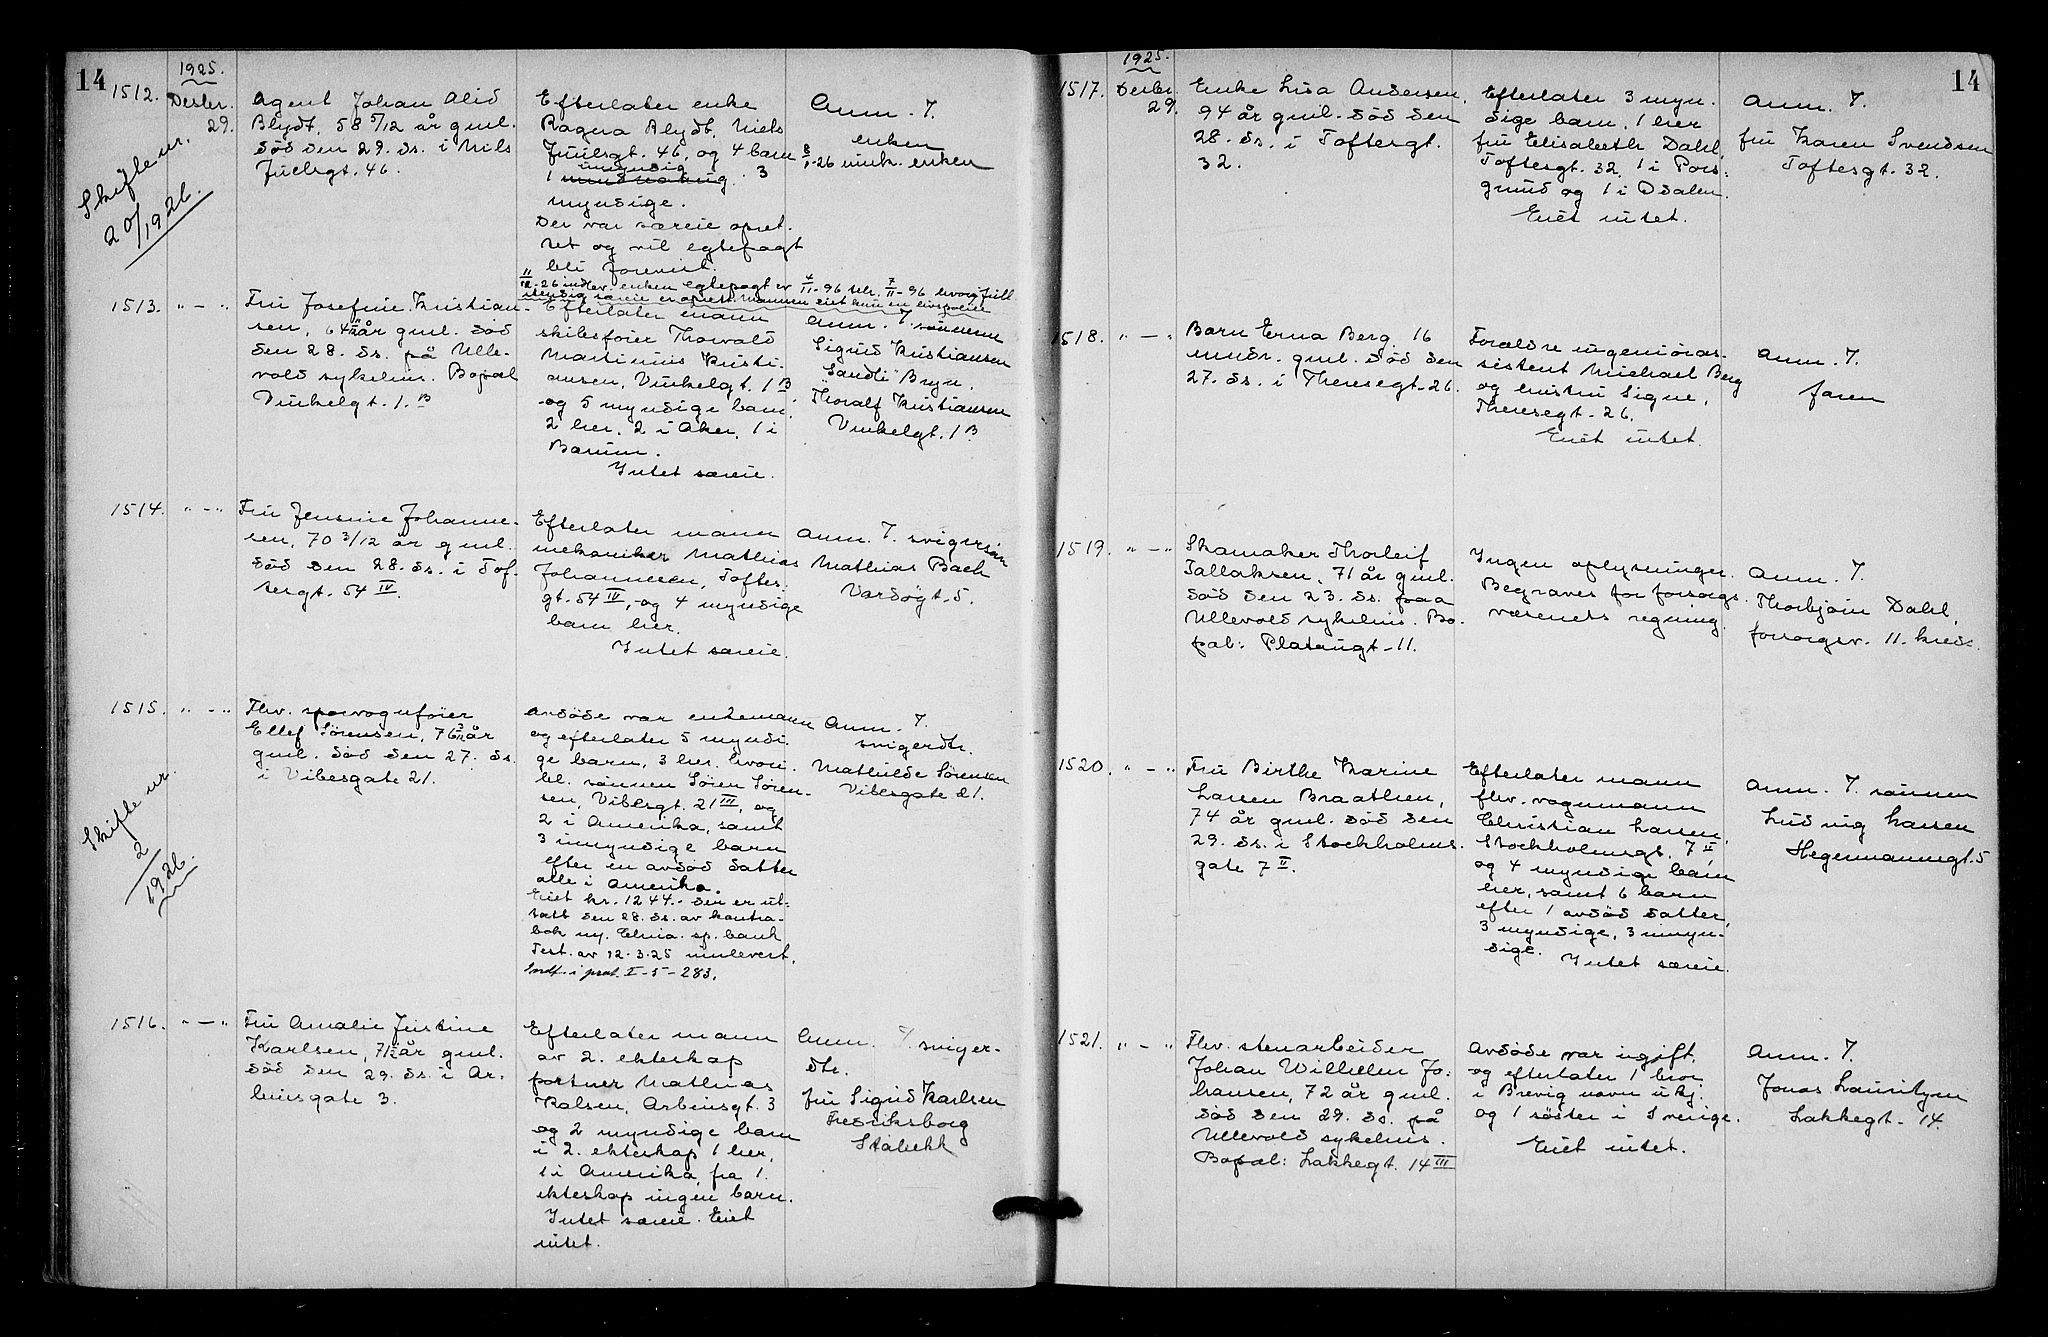 14
1925.
1512.
Desbr.
29.
Skifte nr.
20/1926.
Agent Johan Alid
Blydt, 58 5/12 år gml.
død den 29. ds. i Nils
Juelsgt. 46.
Efterlater enke
Ragna Blydt, Niels
Juulsgt. 46, og 4 barn
umyndig
1 mindreårig. 3
myndige.
Der var særeie opret-
tet og vil egtepagt
bli forevist.
Anm. 7.
enken
8/1-26 unk. enken
II/12-26 indlev. enken egtepagt av 4/II-96 tdr. 7/II-96 hvorefter
stendig særeie er opretet. Mannen eiet kun en livspolise
1513.
" — "
Fru Josefine Kristian-
sen, 64 år gml. død
den 28. ds. på Ulle-
vold sykehus. Bopæl
Vinkelgt. 1. B
Efterlater mann
skibsfører Thorvald
Martinius Kristi-
ansen, Vinkelgt. 1 B,
og 5 myndige barn,
2 her, 2 i Aker, 1 i
Bærum.
Intet særeie.
Anm. 7. sønnene
Sigurd Kristiansen
"Sandli" Bryn.
Thoralf Kristiansen
Vinkelgt. 1 B
1514.
" — "
Fru Jensine Johanne-
sen, 70 3/12 år gml.
død den 28. ds. i Tof-
tesgt. 54 IV.
Efterlater mann
mekaniker Mathias
Johannesen, Toftes-
gt. 54 IV, og 4 myndige
barn her.
Intet særeie.
Anm. 7. svigersøn
Mathias Bach
Vardøgt. 5.
1515.
" — "
Skifte nr.
2/1926.
Fhv. sporvognfører
Ellef Sørensen, 76 år
gml. død den 27. ds.
i Vibesgate 21.
Avdøde var enkemann
og efterlater 5 myndi-
ge barn, 3 her, hvori-
bl. sønnen Søren Søren-
sen, Vibesgt. 21 III, og
2 i Amerika, samt
3 umyndige barn
efter en avdød datter
alle i Amerika.
Eiet kr. 1244.- den er ut-
satt den 28. ds. av kontra-
bok ny. Chria. sp. bank
Test. av 12.3.25 innlevert.
Indf. i prot. I-5-283.
Anm. 7.
svigerdtr.
Mathilde Sørensen
Vibesgate 21.
1516.
" — "
Fru Amalie Justine
Karlsen, 71 år gml.
død den 29. ds. i Ar-
biensgate 3.
Efterlater mann
av 2. ekteskap
portner Mathias
Kalsen, Arbiensgt. 3
og 2 myndige barn
i 2. ekteskap 1 her,
1 i Amerika, fra 1.
ekteskap ingen barn.
Intet særeie. Eiet
intet.
Anm. 7. sviger-
dtr.
fru Sigrid Karlsen
Fredriksborg
Stabekk
14
1925.
1517.
Desbr.
29.
Enke Lisa Andersen,
94 år gml. død den
28. ds. i Toftesgt.
32.
Efterlater 3 myn-
dige barn, 1 her
fru Elisabeth Dahl,
Toftesgt. 32, 1 i Pors-
grund og 1 i Odalen.
Eiet intet.
Anm. 7.
fru Karen Svendsen
Toftesgt. 32.
1518.
" — "
Barn Erna Berg, 16
mndr. gml. død den
27. ds. i Theresegt. 26.
Forældre ingeniøras-
sistent Michael Berg
og hustru Signe,
Theresegt. 26.
Eiet intet.
Anm. 7.
faren
1519.
" — "
Skomaker Thorleif
Tallaksen, 71 år gml.
død den 23. ds. paa
Ullevold sykehus. Bo-
pæl: Platousgt. 11.
Ingen oplysninger.
Begraves for forsorgs-
væsenets regning.
Anm. 7.
Thorbjørn Dahl,
forsorgsv. 11. kreds.
1520.
" — "
Fru Birthe Karine
Larsen Braathen,
74 år gml. død den
29. ds. i Stockholms-
gate 7 II.
Efterlater mann
fhv. vognmann
Christian Larsen,
Stockholmsgt. 7 II,
og 4 myndige barn
her, samt 6 barn
efter 1 avdød datter,
3 myndige, 3 umyn-
dige.
Intet særeie.
Anm. 7. sønnen
Ludvig Larsen
Hegermannsgt. 5
1521.
" — "
Fhv. stenarbeider
Johan Wilhelm Jo-
hansen, 72 år gml.
død den 29. ds. på
Ullevold sykehus.
Bopæl: Lakkegt. 14 III
Avdøde var ugift,
og efterlater 1 bror
i Brevig navn ukj.
og 1 søster i Sverige.
Eiet intet.
Anm. 7.
Jonas Lauritzen
Lakkegt. 14.